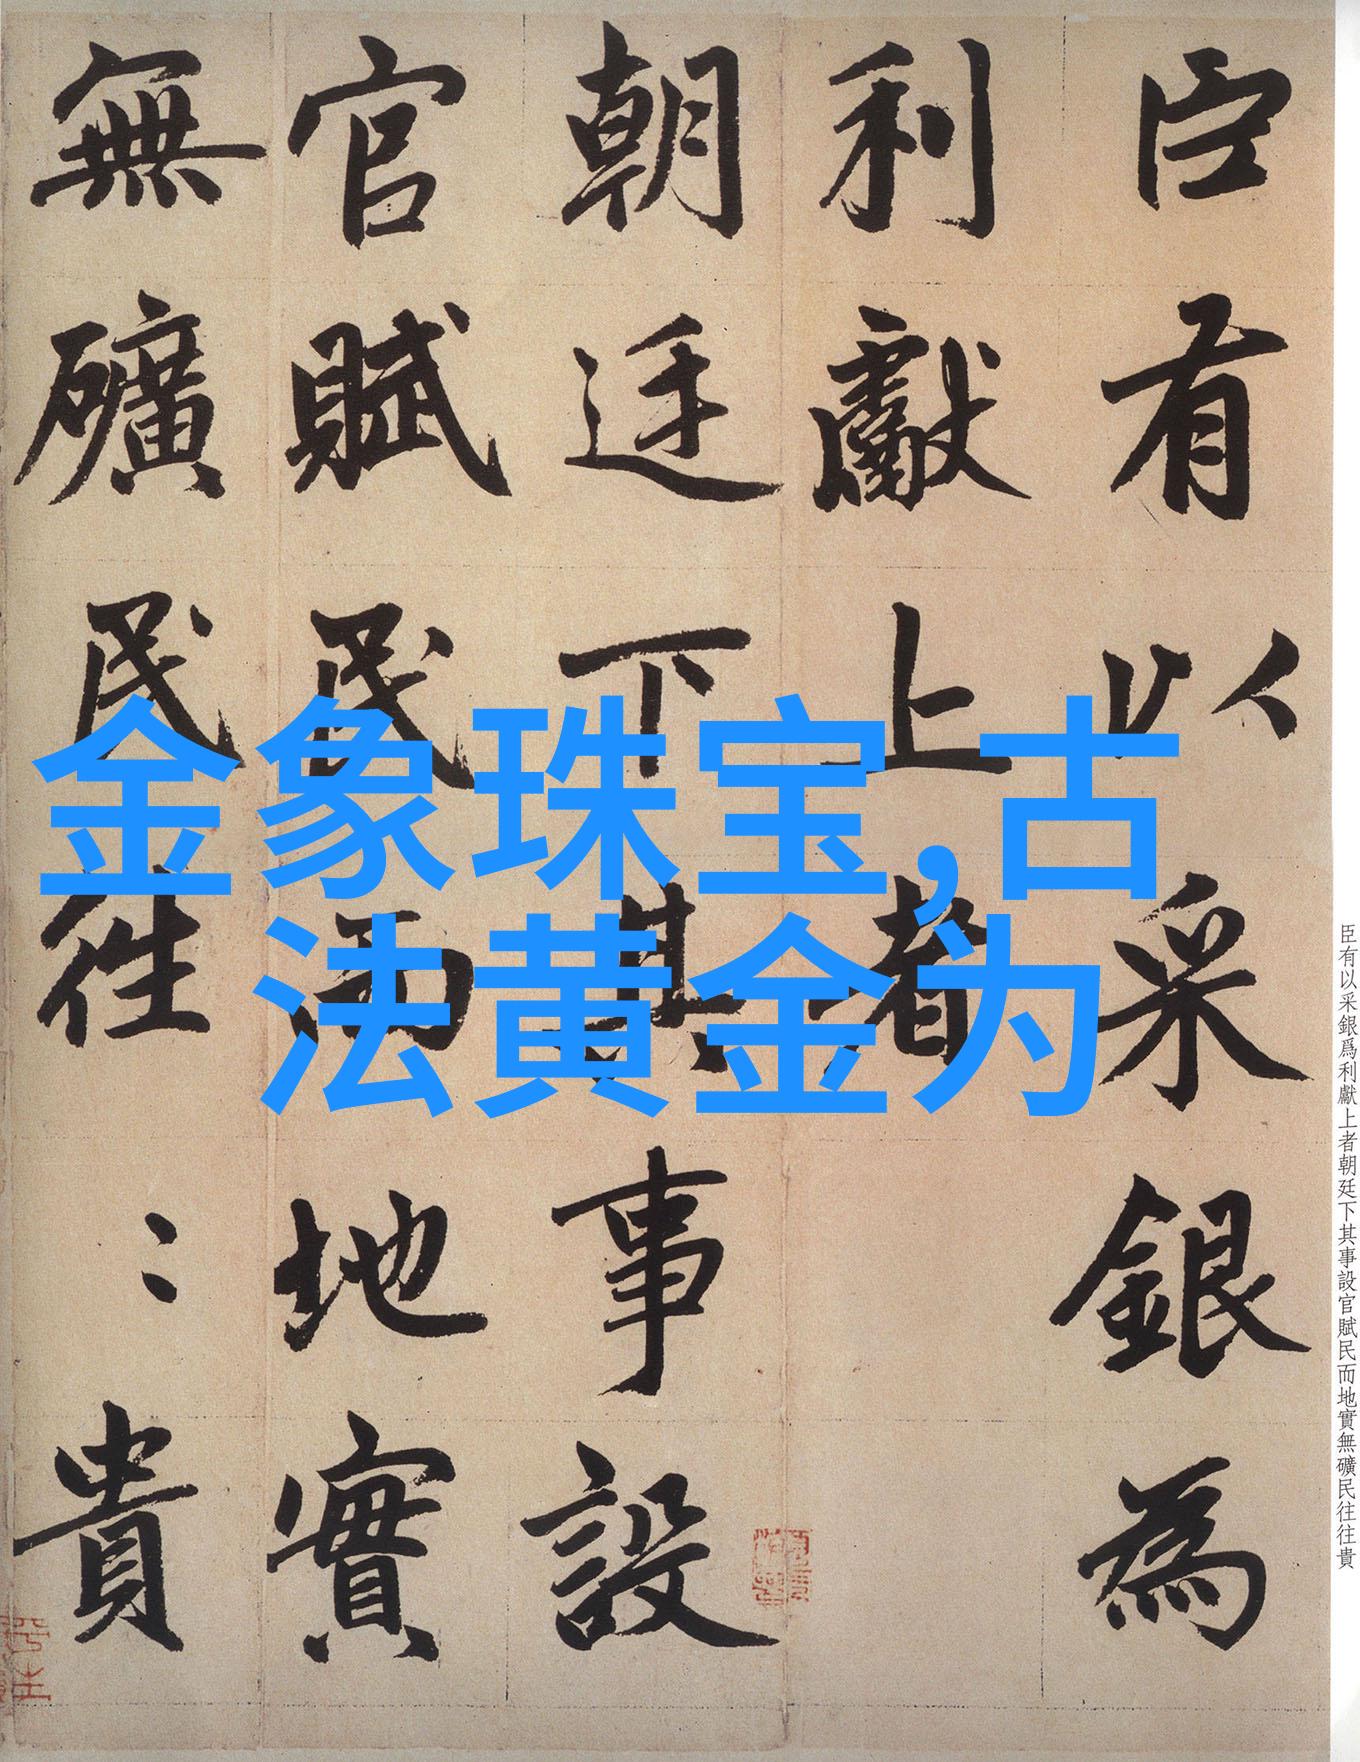 臣有以采銀為
利獻上者
朝廷下其事設
官賦民而地實
無礦民往〻貴
金象珠宝,古
法黄金为
臣有以采銀爲利獻上者朝廷下其事設官賦民而地實無礦民往往貴